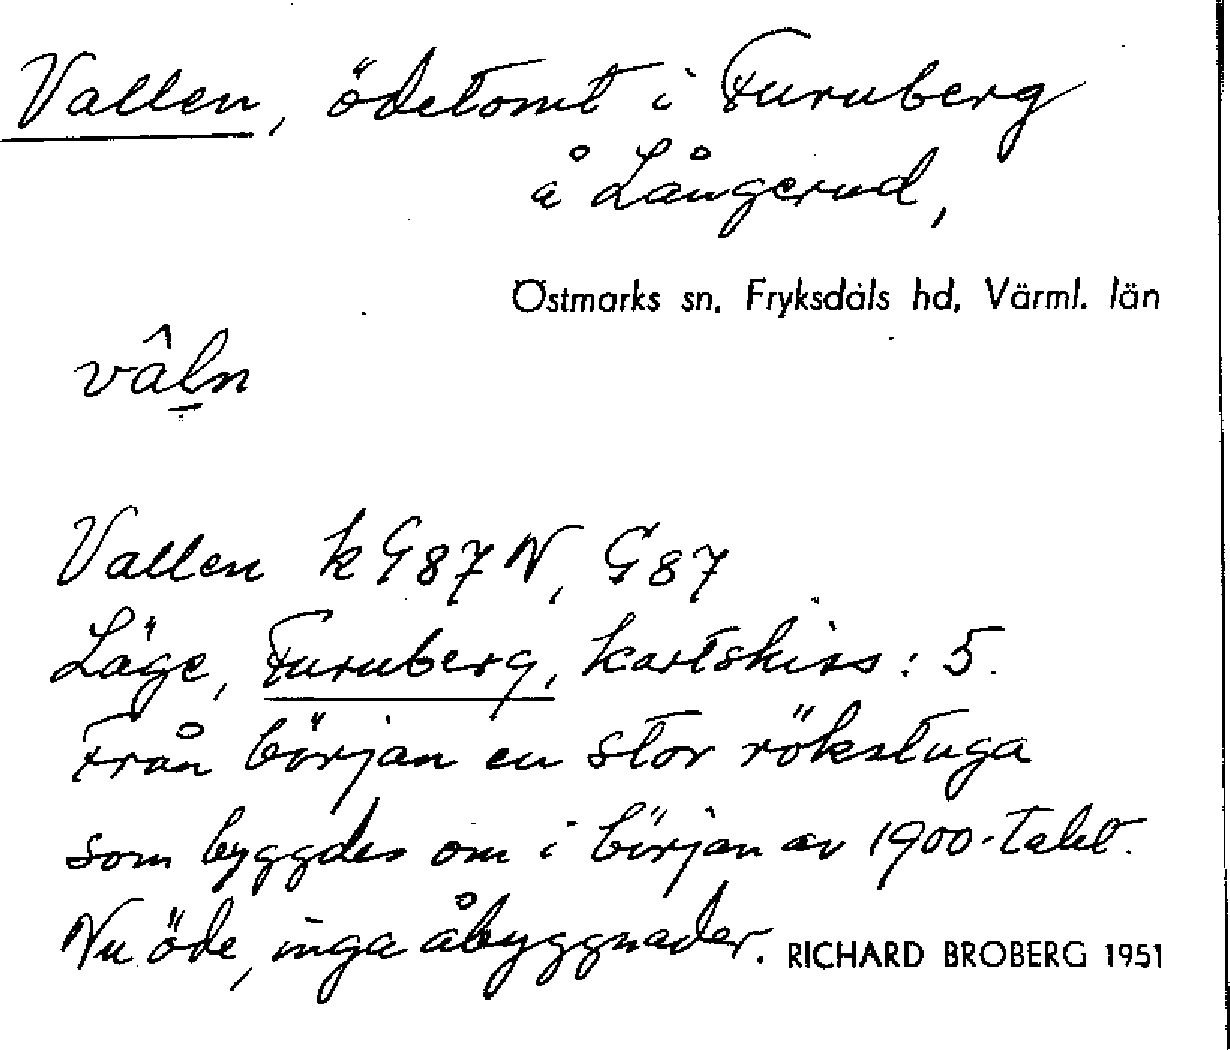 Vallen, ödetomt i Furuberg
å Långerud,
Östmarks sn, Fryksdals hd, Värml. län
vâln
Vallen k G87 N, G87
Läge, Furuberg, kartskiss: 5.
Från början en stor rökstuga
som byggdes om i början av 1900-talet.
Nu öde, inga åbyggnader. RICHARD BROBERG 1951